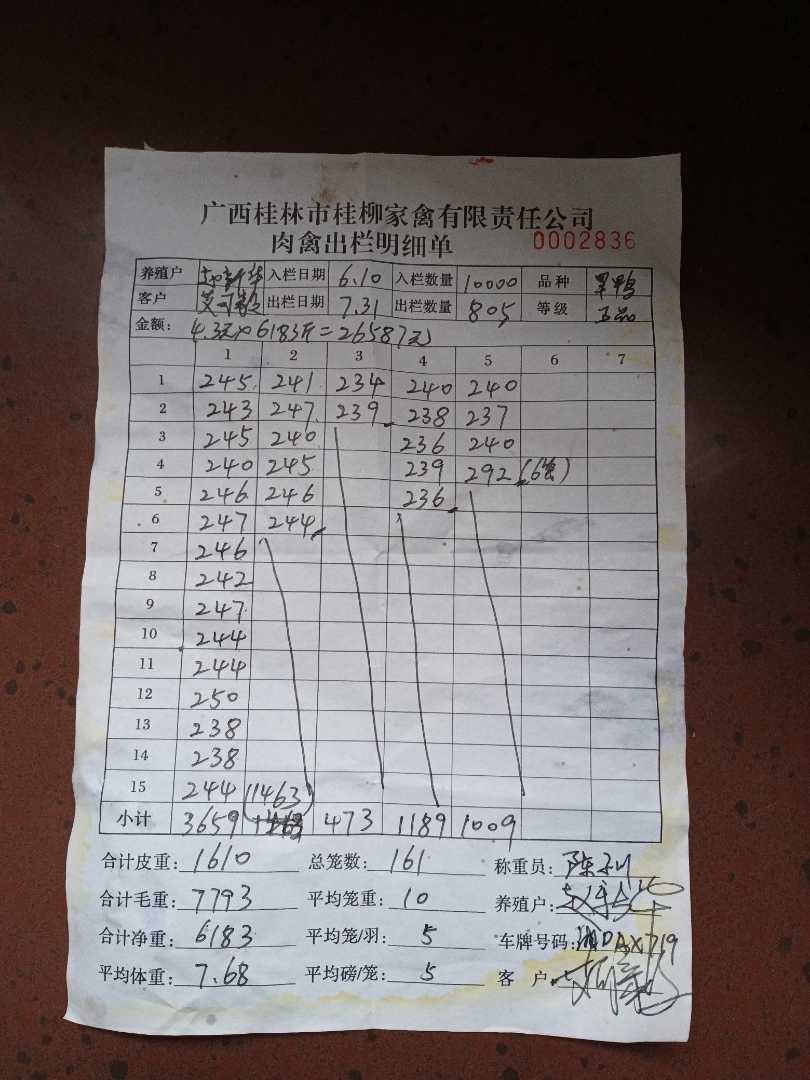 广西桂林市桂柳家禽有限责任公司
肉禽出栏明细单 0002836
养殖户 入栏日期 6.10 入栏数量 10000 品种 黑鸭
客户 出栏日期 7.31 出栏数量 805 等级 正品
金额: 4.3元×6183斤=26587元
1 2 3 4 5 6 7
1 245 241 234 240 240
2 243 247 239 238 237
3 245 240 236 240
4 240 245 239 292(6笼)
5 246 246 236
6 247 244
7 246
8 242
9 247
10 244
11 244
12 250
13 238
14 238
15 244 (1463)
小计 3659 473 1189 1009
合计皮重: 1610 总笼数: 161 称重员: 陈
合计毛重: 7793 平均笼重: 10 养殖户:
合计净重: 6183 平均笼/羽: 5 车牌号码: 湘DAX719
平均体重: 7.68 平均磅/笼: 5 客户: